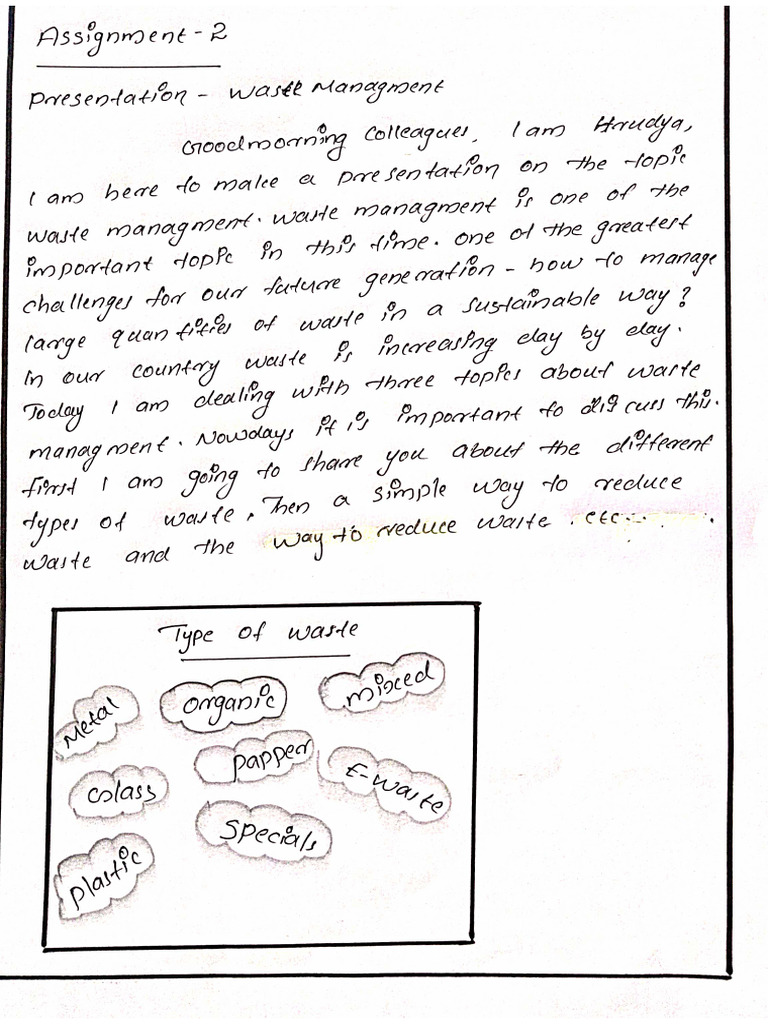 Assignment - 2
Presentation - Waste Managment
Goodmorning Colleagues, I am Hrudya,
I am here to make a presentation on the topic
waste managment. waste managment is one of the
important topic in this time. one of the greatest
challenges for our future generation - how to manage
large quantities of waste in a sustainable way?
In our country waste is increasing day by day.
Today I am dealing with three topics about waste
managment. Nowdays it is important to discuss this.
first I am going to share you about the different
types of waste, Then a simple way to reduce
waste and the way to reduce waste etc.....
Type of waste
Metal
organic
mixed
Glass
papper
E-waste
plastic
specials